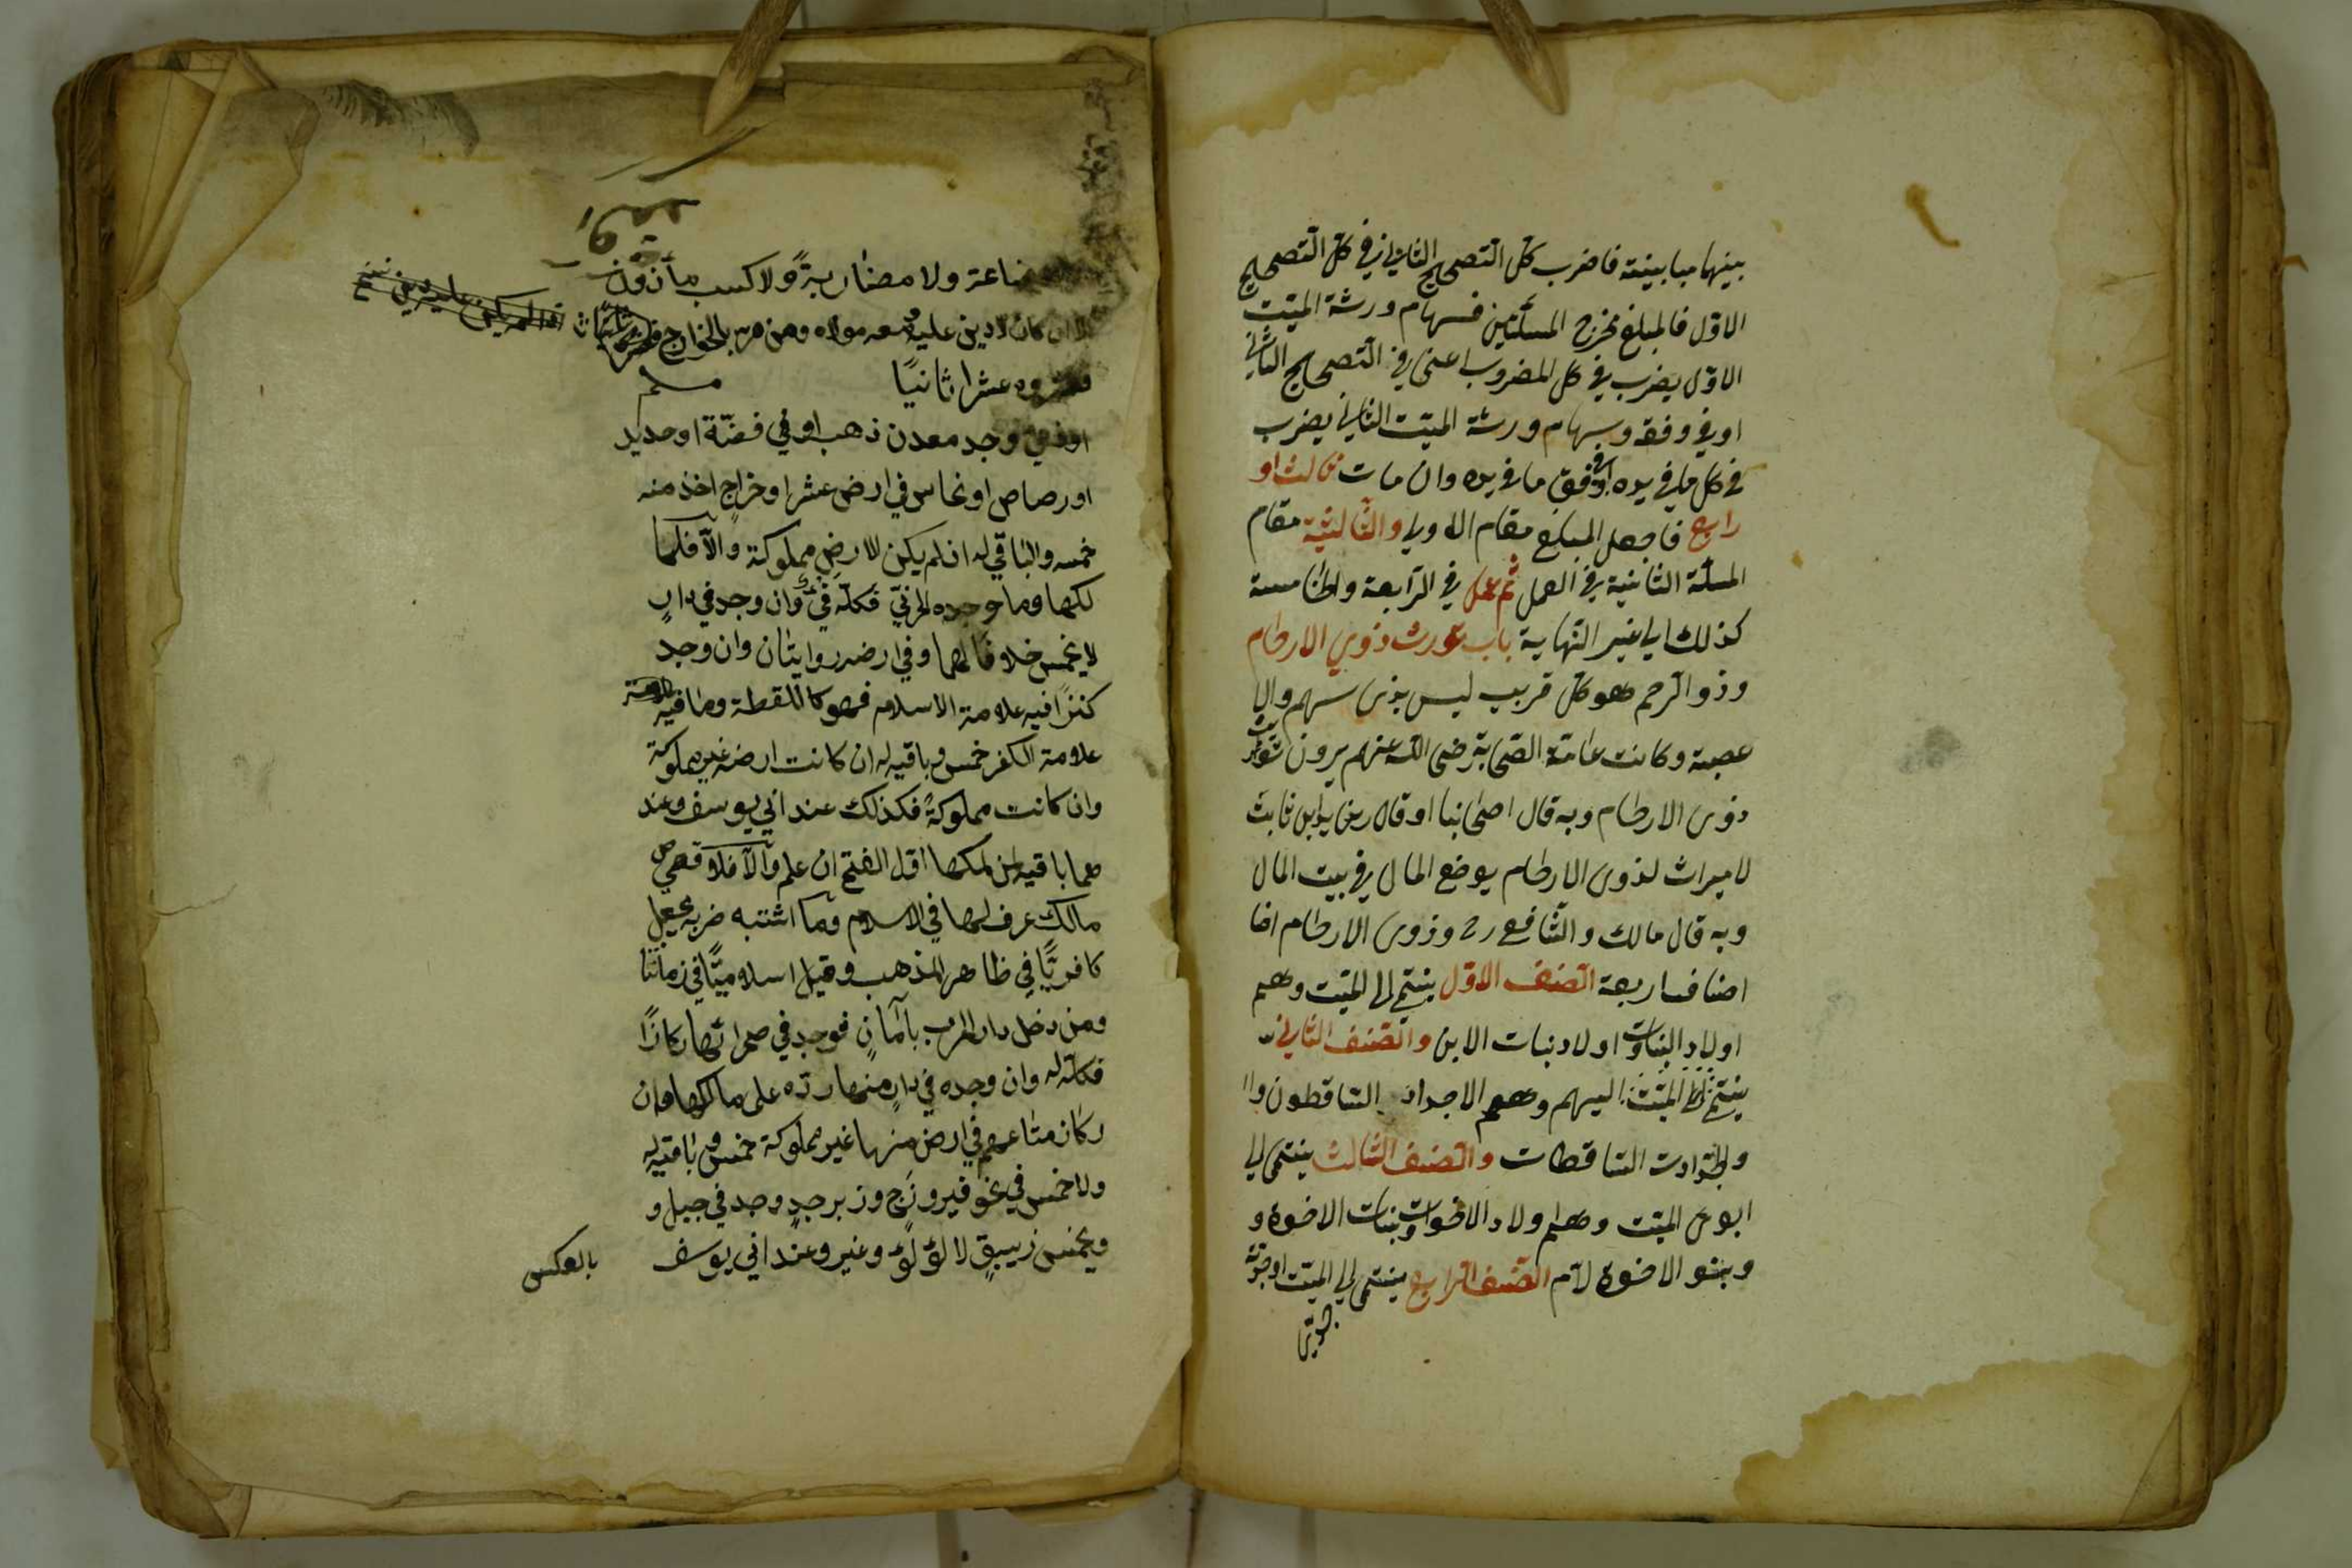 بينهما مباينة فاضرب كل التصحيح الثاني في كل التصحيح
الاول فالمبلغ مخرج المسئلتين فسهام ورثة الميت
الاول يضرب في كل المضروب اعنى في التصحيح الثاني
او في وفقه وسهام ورثة الميت الثاني يضرب
في كل ما في يده او في وفق ما في يده وان مات ثالث او
رابع فاجعل المبلغ مقام الاولى والثالثة مقام
المسئلة الثانية في العمل ثم عمل في الرابعة والخامسة
كذلك الى غير النهاية باب تورث ذوي الارحام
وذو الرحم هو كل قريب ليس بذى سهم ولا
عصبة وكانت عامة الصحابة رضى الله عنهم يرون توريث
ذوى الارحام وبه قال اصحابنا وقال زيد ابن ثابت
لا ميراث لذوى الارحام يوضع المال في بيت المال
وبه قال مالك والشافعي رح وذوى الارحام اضا
اصناف اربعة الصنف الاول ينتمى الى الميت وهم
اولاد البنات واولاد بنات الابن والصنف الثاني
ينتمى الميت اليهم وهم الاجداد الساقطون وا
والجدات الساقطات والصنف الثالث ينتمى الى
ابوى الميت وهم اولاد الاخوات وبنات الاخوة و
وبنو الاخوة لام الصنف الرابع ينتمى الى الميت اوجدته
جدتى
بضاعة ولا مضاربة ولا كسب مأذون
الا ان كان لا دين عليه ومعه مولاه ومن مر بالخوارج
فعشروه عشر ثانيا
او في وجد معدن ذهب او في فضة او حديد
او رصاص او نحاس في ارض عشر او خراج اخذ منه
خمسه والباقي له ان لم يكن الارض مملوكة والا فلما
لكها وما وجده الحربي فكله فيئ وان وجد في دار
لا يخمس خلافا لهما وفي ارضه روايتان وان وجد
كنزا فيه علامة الاسلام فهو كاللقطة وما فيه
علامة الكفر خمس وباقيه له ان كانت ارضه غير مملوكة
وان كانت مملوكة فكذلك عند ابي يوسف وعند
هما باقيه لمن ملكها اول الفتح ان علم والا فلاقصى
مالك عرف لها في الاسلام وما اشتبه ضربه يجعل
كافريا في ظاهر المذهب وقيل اسلاميا في زماننا
ومن دخل دار الحرب بأمان فوجد في صحرائها ركازا
فكله له وان وجده في دار منها رده على مالكها وان
ركاز متاعهم في ارض منها غير مملوكة خمس وباقيه له
ولا خمس في نحو فيروزج وزبرجد وجد في جبل و
ويخمس زيبق لا لؤلؤ وعنبر وعند ابي يوسف
بالعكس